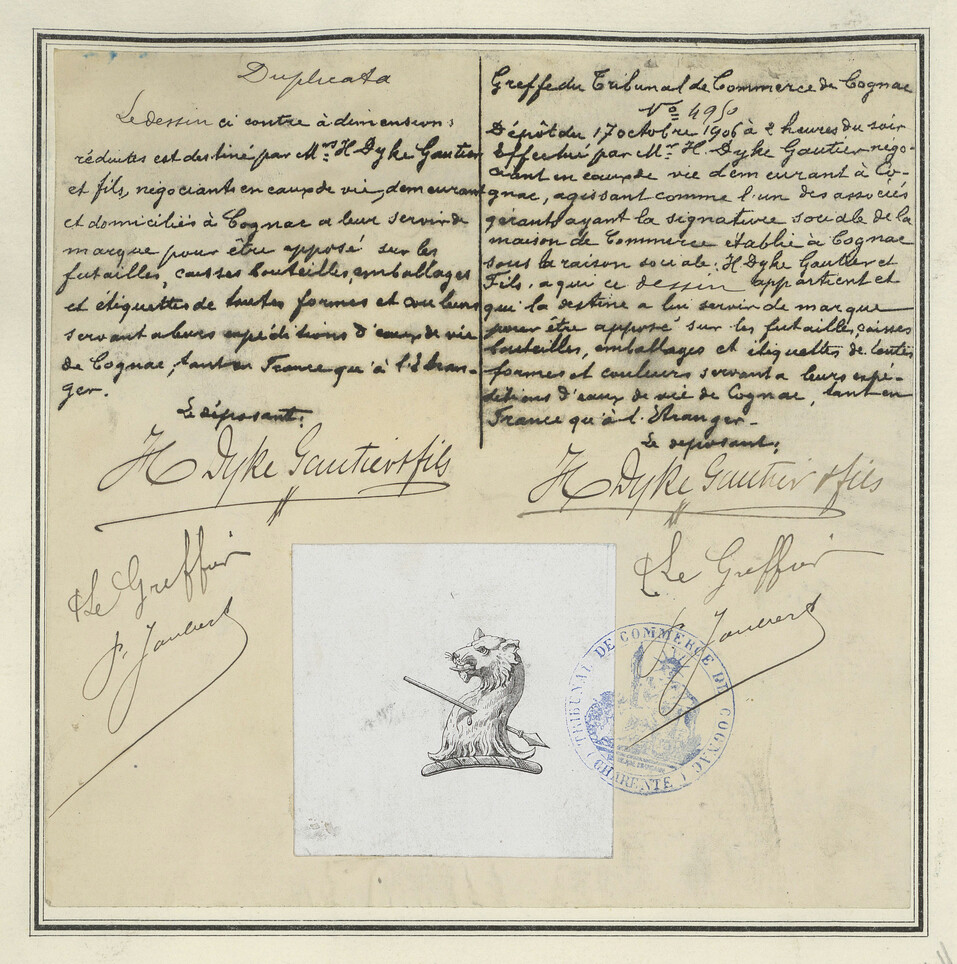 Duplicata
Le dessin ci contre à dimensions
réduites est destiné par Mrs H. Dyke Gautier
et fils, négociants en eaux de vie, demeurant
et domiciliés à Cognac a leur servir de
marque pour être apposé sur les
futailles, caisses bouteilles, emballages
et étiquettes de toutes formes et couleurs
servant a leurs expéditions d'eaux de vie
de Cognac, tant en France qu'à l'Etran-
ger.
Le déposant:
H Dyke Gautier & fils
Le Greffier
Greffe du Tribunal de Commerce de Cognac
No 4950
Dépôt du 17 octobre 1906 à 2 heures du soir
Effectué par Mr H. Dyke Gautier négo-
ciant en eaux de vie demeurant à Co-
gnac, agissant comme l'un des associés
gérants ayant la signature sociale de la
maison de Commerce établie à Cognac
sous la raison sociale: H Dyke Gautier et
Fils, a qui ce dessin appartient et
qui la destine a lui servir de marque
pour être apposé sur les futailles, caisses
bouteilles, emballages et étiquettes de toutes
formes et couleurs servant a leurs expé-
ditions d'eaux de vie de Cognac, tant en
France qu'à l'Etranger.
Le deposant:
H Dyke Gautier & fils
Le Greffier
TRIBUNAL DE COMMERCE DE COGNAC
(CHARENTE)